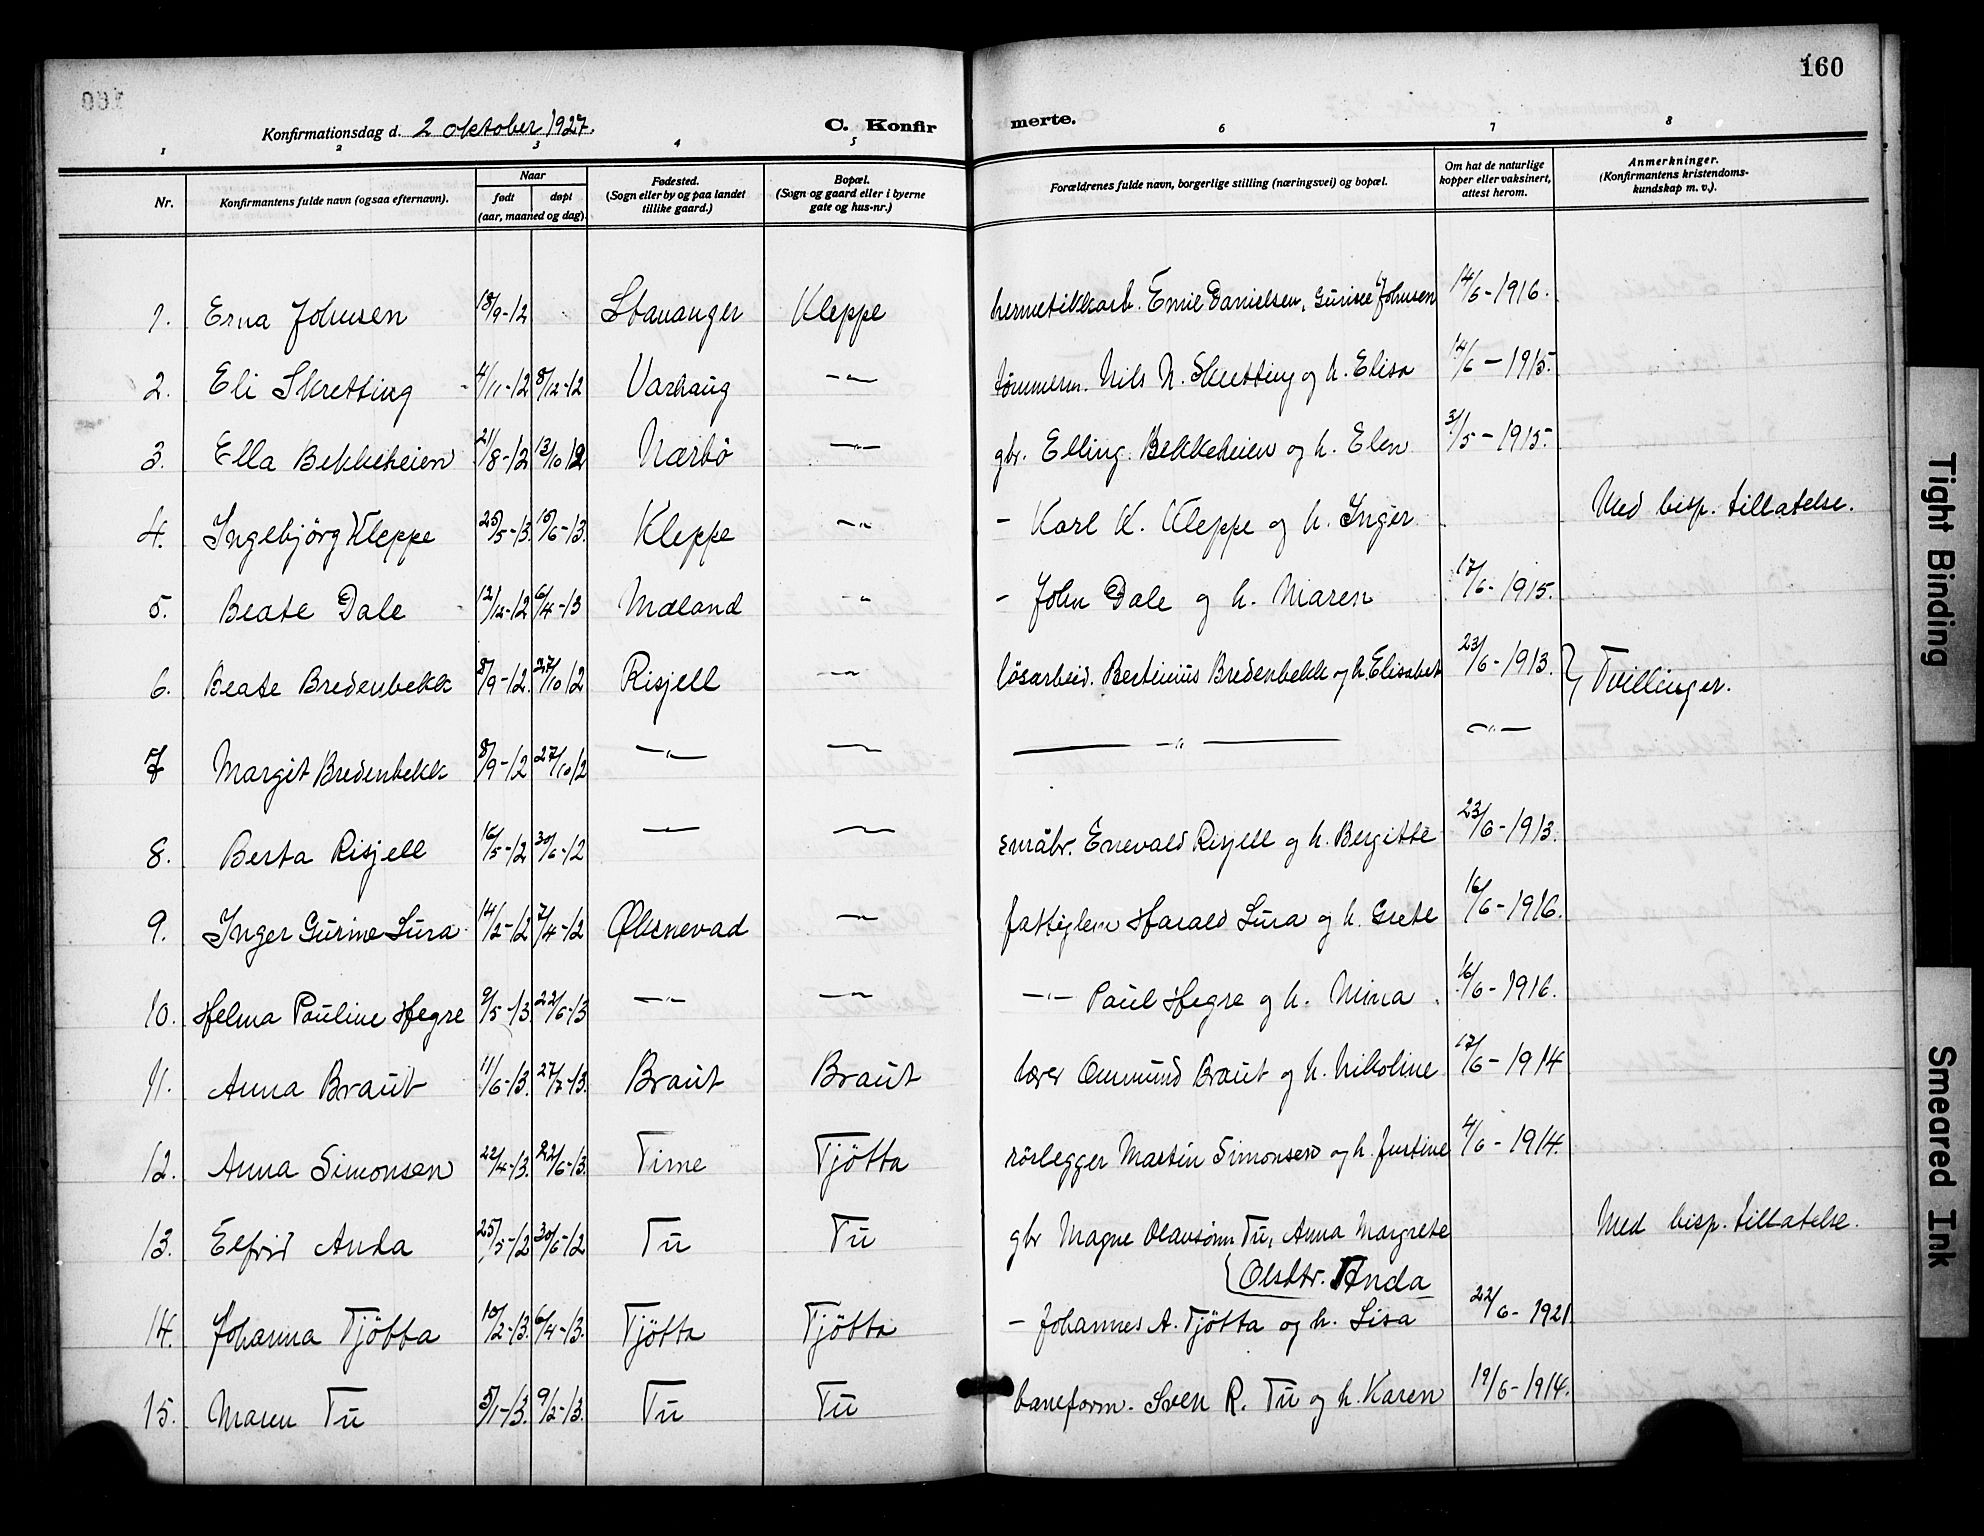 160
Konfirmationsdag d. 2 oktober 1927.
C. Konfirmerte.
1 2 3 4 5 6 7 8
Nr.
Konfirmantens fulde navn (ogsaa efternavn).
Naar
født døpt
(aar, maaned og dag).
Fødested.
(Sogn eller by og paa landet
tillike gaard.)
Bopæl.
(Sogn og gaard eller i byerne
gate og hus-nr.)
Forældrenes fulde navn, borgerlige stilling (næringsvei) og bopæl.
Om hat de naturlige
kopper eller vaksinert,
attest herom.
Anmerkninger.
(Konfirmantens kristendoms-
kundskap m. v.).
1. Erna Johnsen 18/9-12 Stavanger Kleppe hermetikkarb. Emil Danielsen, Gurine Johnsen 14/6-1916.
2. Eli Skretting 4/11-12 8/12-12 Varhaug -"- tömmerm. Nils N. Skretting og h. Elisa 14/6-1915.
3. Ella Bekkeheien 21/8-12 13/10 12 Nærbö -"- gbr. Elling Bekkeheien og h. Elen 3/5-1915.
4. Ingebjörg Kleppe 25/5-13. 15/6-13. Kleppe -"- - Karl K. Kleppe og h. Inger Med bisp. tillatelse.
5. Beate Dale 12/12-12 6/4-13 Mæland -"- - John Dale og h. Maren 17/6-1915.
6. Beate Bredenbekk 8/9-12. 27/10 12 Risjell -"- lösarbeid. Bertinius Bredenbekk og h. Elisabet 23/6-1913. } Tvillinger.
7 Margit Bredenbekk 8/9-12 27/10 12 -"- -"- -"- -"-
8. Berta Risjell 16/5-12 30/6-12 -"- -"- småbr. Enevald Risjell og h. Bergitte 23/6-1913.
9. Inger Gurine Lura 14/2-12 7/4-12 Øksnevad -"- fattiglem Harald Lura og h. Grete 16/6-1916.
10. Helma Pauline Hegre 9/5-13 22/6-13 -"- -"- -"- Paul Hegre og h. Mina 16/6-1916.
11. Anna Braut 11/6-13. 27/7-13. Braut Braut lærer Ommund Braut og h. Nikoline 17/6-1914
12. Anna Simonsen 22/4-13. 22/6-13. Time Tjötta rörlegger Martin Simonsen og h. Justine 4/6-1914.
13. Elfrid Anda 25/5-12 30/6-12 Tu Tu gbr Magne Olavsönn Tu, Anna Margrete Med bisp. tillatelse.
Olsdtr. Anda
14. Johanna Tjötta 10/2-13. 6/4-13. Tjötta Tjötta - Johannes A. Tjötta og h. Lisa 22/6-1921.
15. Maren Tu 5/1-13. 9/2-13. Tu Tu baneform. Sven R. Tu og h. Karen 19/6-1914.
Tight Binding
Smeared Ink